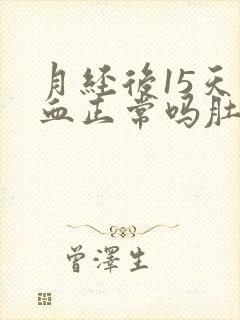 月经後15天
血正常吗肚
曾澤生